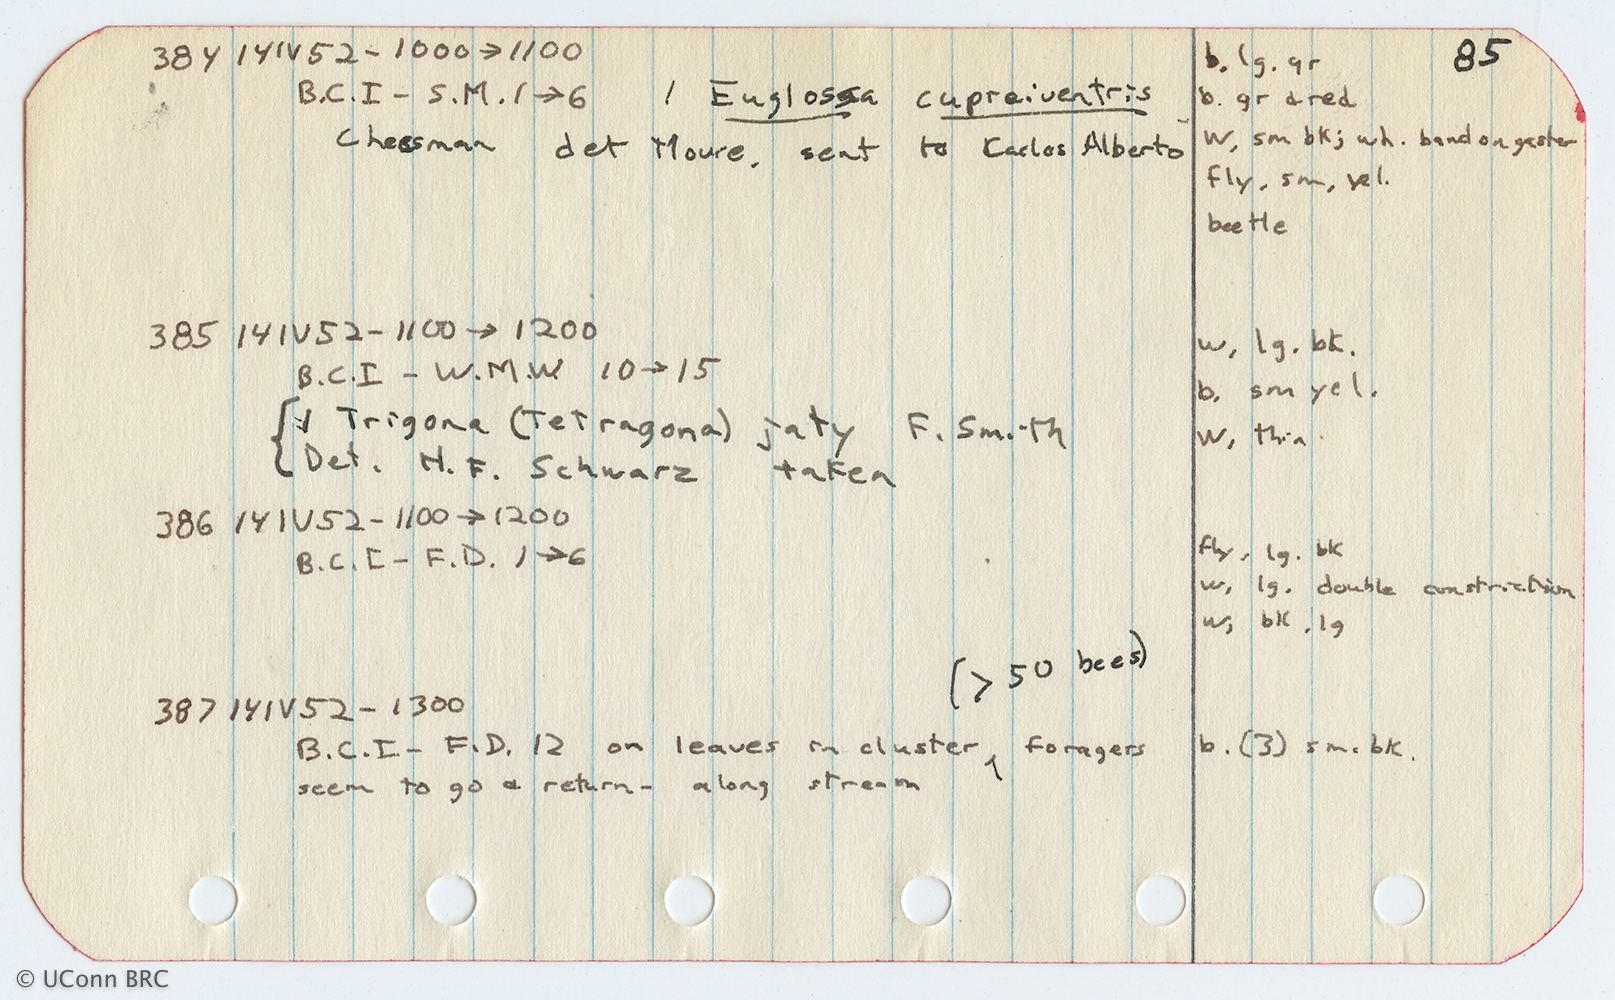 85
384 14IV52 - 1000→1100
B.C.I - S.M. 1→6 1 Euglossa cupreiventris
Cheesman det Moure, sent to Carlos Alberto
b. lg. gr
b. gr & red
w, sm bk; wh. band on gaster
fly, sm, yel.
beetle
385 14IV52 - 1100→1200
B.C.I - W.M.W 10→15
Trigona (Tetragona) jaty F. Smith
Det. H.F. Schwarz taken
w, lg. bk.
b. sm yel.
w, thin.
386 14IV52 - 1100→1200
B.C.I - F.D. 1→6
fly, lg. bk
w, lg. double constriction
w, bk, lg
(> 50 bees)
387 14IV52 - 1300
B.C.I - F.D. 12 on leaves in cluster, foragers
seem to go & return - along stream
b. (3) sm. bk.
© UConn BRC